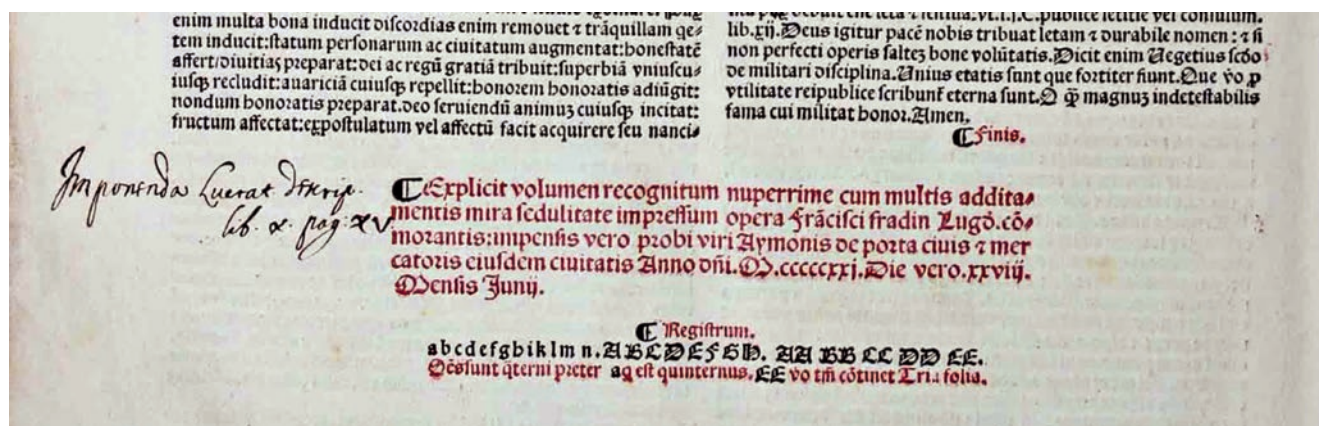 enim multa bona inducit discordias enim remouet ⁊ trãquillam qe⸗
tem inducit:statum personarum ac ciuitatum augmentat:honestatẽ
affert:diuitias preparat:dei ac regũ gratiã tribuit:superbiã vniuscu⸗
iusqꝫ recludit:auariciã cuiusqꝫ repellit:honorem honoratis adiũgit:
nondum honoratis preparat.deo seruiendũ animuꝫ cuiusqꝫ incitat:
fructum affectat:expostulatum vel affectũ facit acquirere seu nanci⸗
lib.xij.Deus igitur pacẽ nobis tribuat letam ⁊ durabile nomen: ⁊ si
non perfecti operis salteꝫ bone volũtatis.Dicit enim Uegetius scďo
de militari disciplina.Unius etatis sunt que fortiter fiunt.Que ṽo ꝓ
vtilitate reipublice scribunt̃ eterna sunt.O q̃ꝫ magnuꝫ indetestabilis
fama cui militat honor.Amen.
¶ Finis.
Imponenda Luerat Descrip.
lib. x. pag. XV
¶ Explicit volumen recognitum nuperrime cum multis addita⸗
mentis mira sedulitate impressum opera Frãcisci fradin Lugd̃.cõ⸗
morantis:impensis vero probi viri Aymonis de porta ciuis ⁊ mer
catoris eiusdem ciuitatis Anno dñi.M.cccccxxj.Die vero.xxviij.
Mensis Junij.
¶ Registrum.
a b c d e f g h i k l m n. A B C D E F G H. AA BB CC DD EE.
Oẽs sunt q̃terni preter a q̃ est quinternus. EE ṽo tm̃ cõtinet Tria folia.